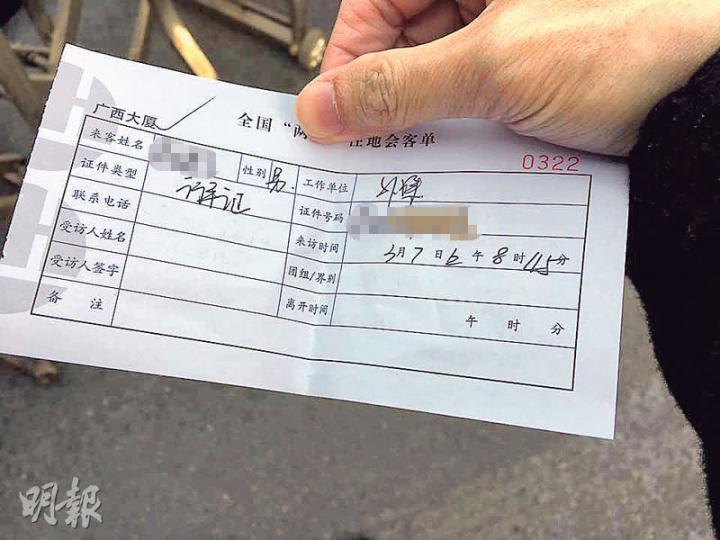 广西大厦
全国“两 地会客单
0322
来客姓名 性别 男 工作单位
证件类型 记者证 证件号码
联系电话 来访时间 3月7日上午8时45分
受访人姓名 团组/界别
受访人签字 离开时间 午 时 分
备 注
明報